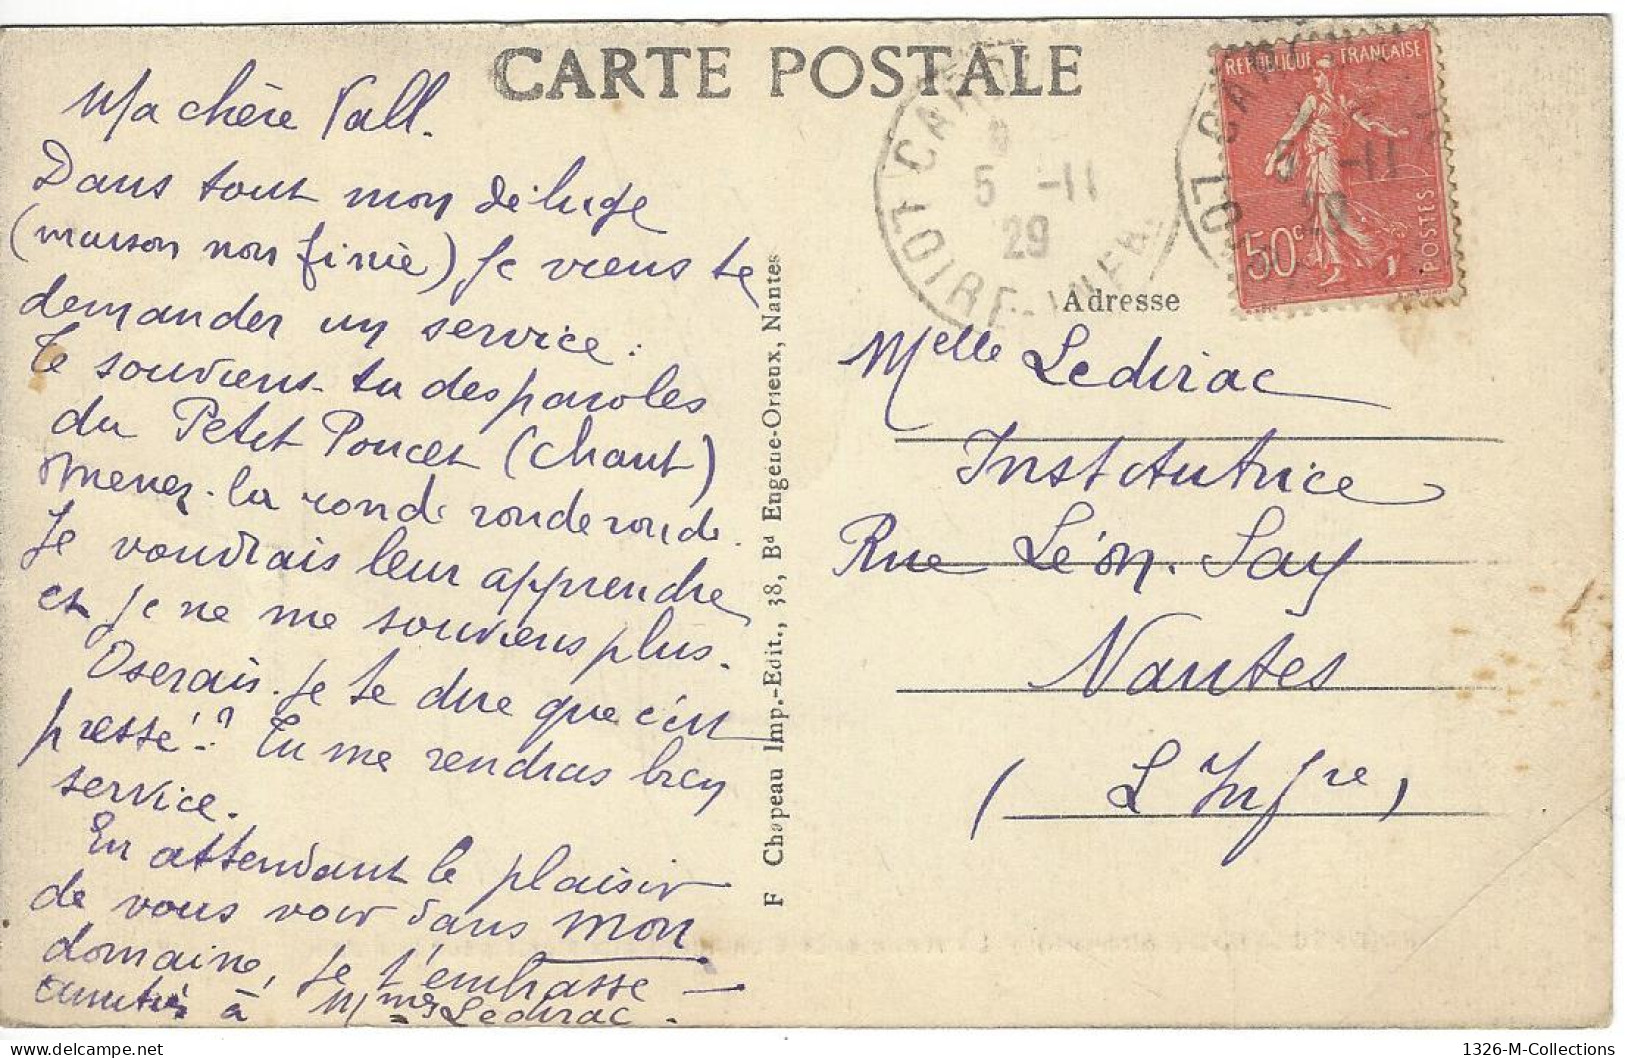 CARTE POSTALE
Ma chère Vall.
Dans tout mon déluge
(maison non finie) je viens te
demander un service :
Te souviens-tu des paroles
du Petit Poucet (chant)
Menez-la ronde ronde ronde.
Je voudrais leur apprendre
et je ne me souviens plus.
Oserais-je te dire que c'est
pressé!? Tu me rendras bien
service.
En attendant le plaisir
de vous voir dans mon
domaine, je t'embrasse —
amitiés à Mmes Ledirac.
F Chapeau Imp.-Edit., 38, Bd Engène-Orieux, Nantes
LOIRE-INFRE
5 -11
29
REPUBLIQUE FRANÇAISE
50c
POSTES
5 -11
29
Adresse
Melle Ledirac
Institutrice
Rue Léon Say
Nantes
(L Infre)
1326-M-Collections
delcampe.net